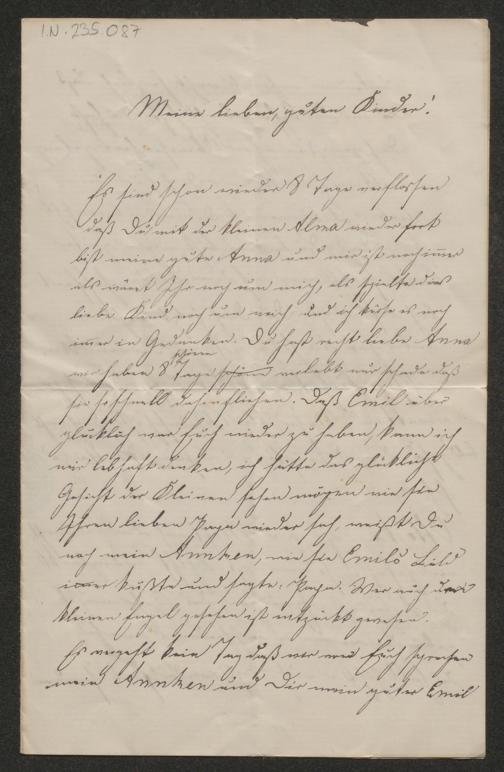 I.N. 235.087
Meine lieben, guten Kinder!
Es sind schon wieder 8 Tage verflossen
daß Du mit der kleinen Alma wieder fort
bist meine gute Anna und mir ist noch immer
als wäret Ihr noch um mich, als spielte das
liebe Kind noch um mich und ich küsse es noch
immer in Gedanken. Du hast recht liebe Anna
wir haben 8 schöne Tage verlebt nur schade daß
sie so schnell dahinfliehen. Daß Emil über
glücklich war Euch wieder zu haben, kann ich
mir lebhaft denken, ich hätte das glückliche
Gesicht der Kleinen sehen mögen wie sie
Ihren lieben Papa wieder sah, weißt Du
noch mein Annchen, wie sie Emils Bild
immer küßte und sagte: Papa. Wer auch den
kleinen Engel gesehen ist entzückt gewesen.
Es vergeht kein Tag daß wir von Euch sprechen
mein Annchen und Dir mein guter Emil